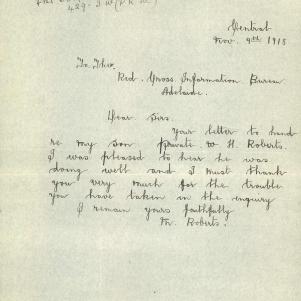 Central
Nov. 9th 1915
To The.
Red. Cross Information Bureau
Adelaide.
Dear Sirs.
Your letter to hand
re my son private W H. Roberts.
I was pleased to hear he was
doing well and I must thank
you very much for the trouble
you have taken in the enquiry
I remain yours faithfully
Roberts.